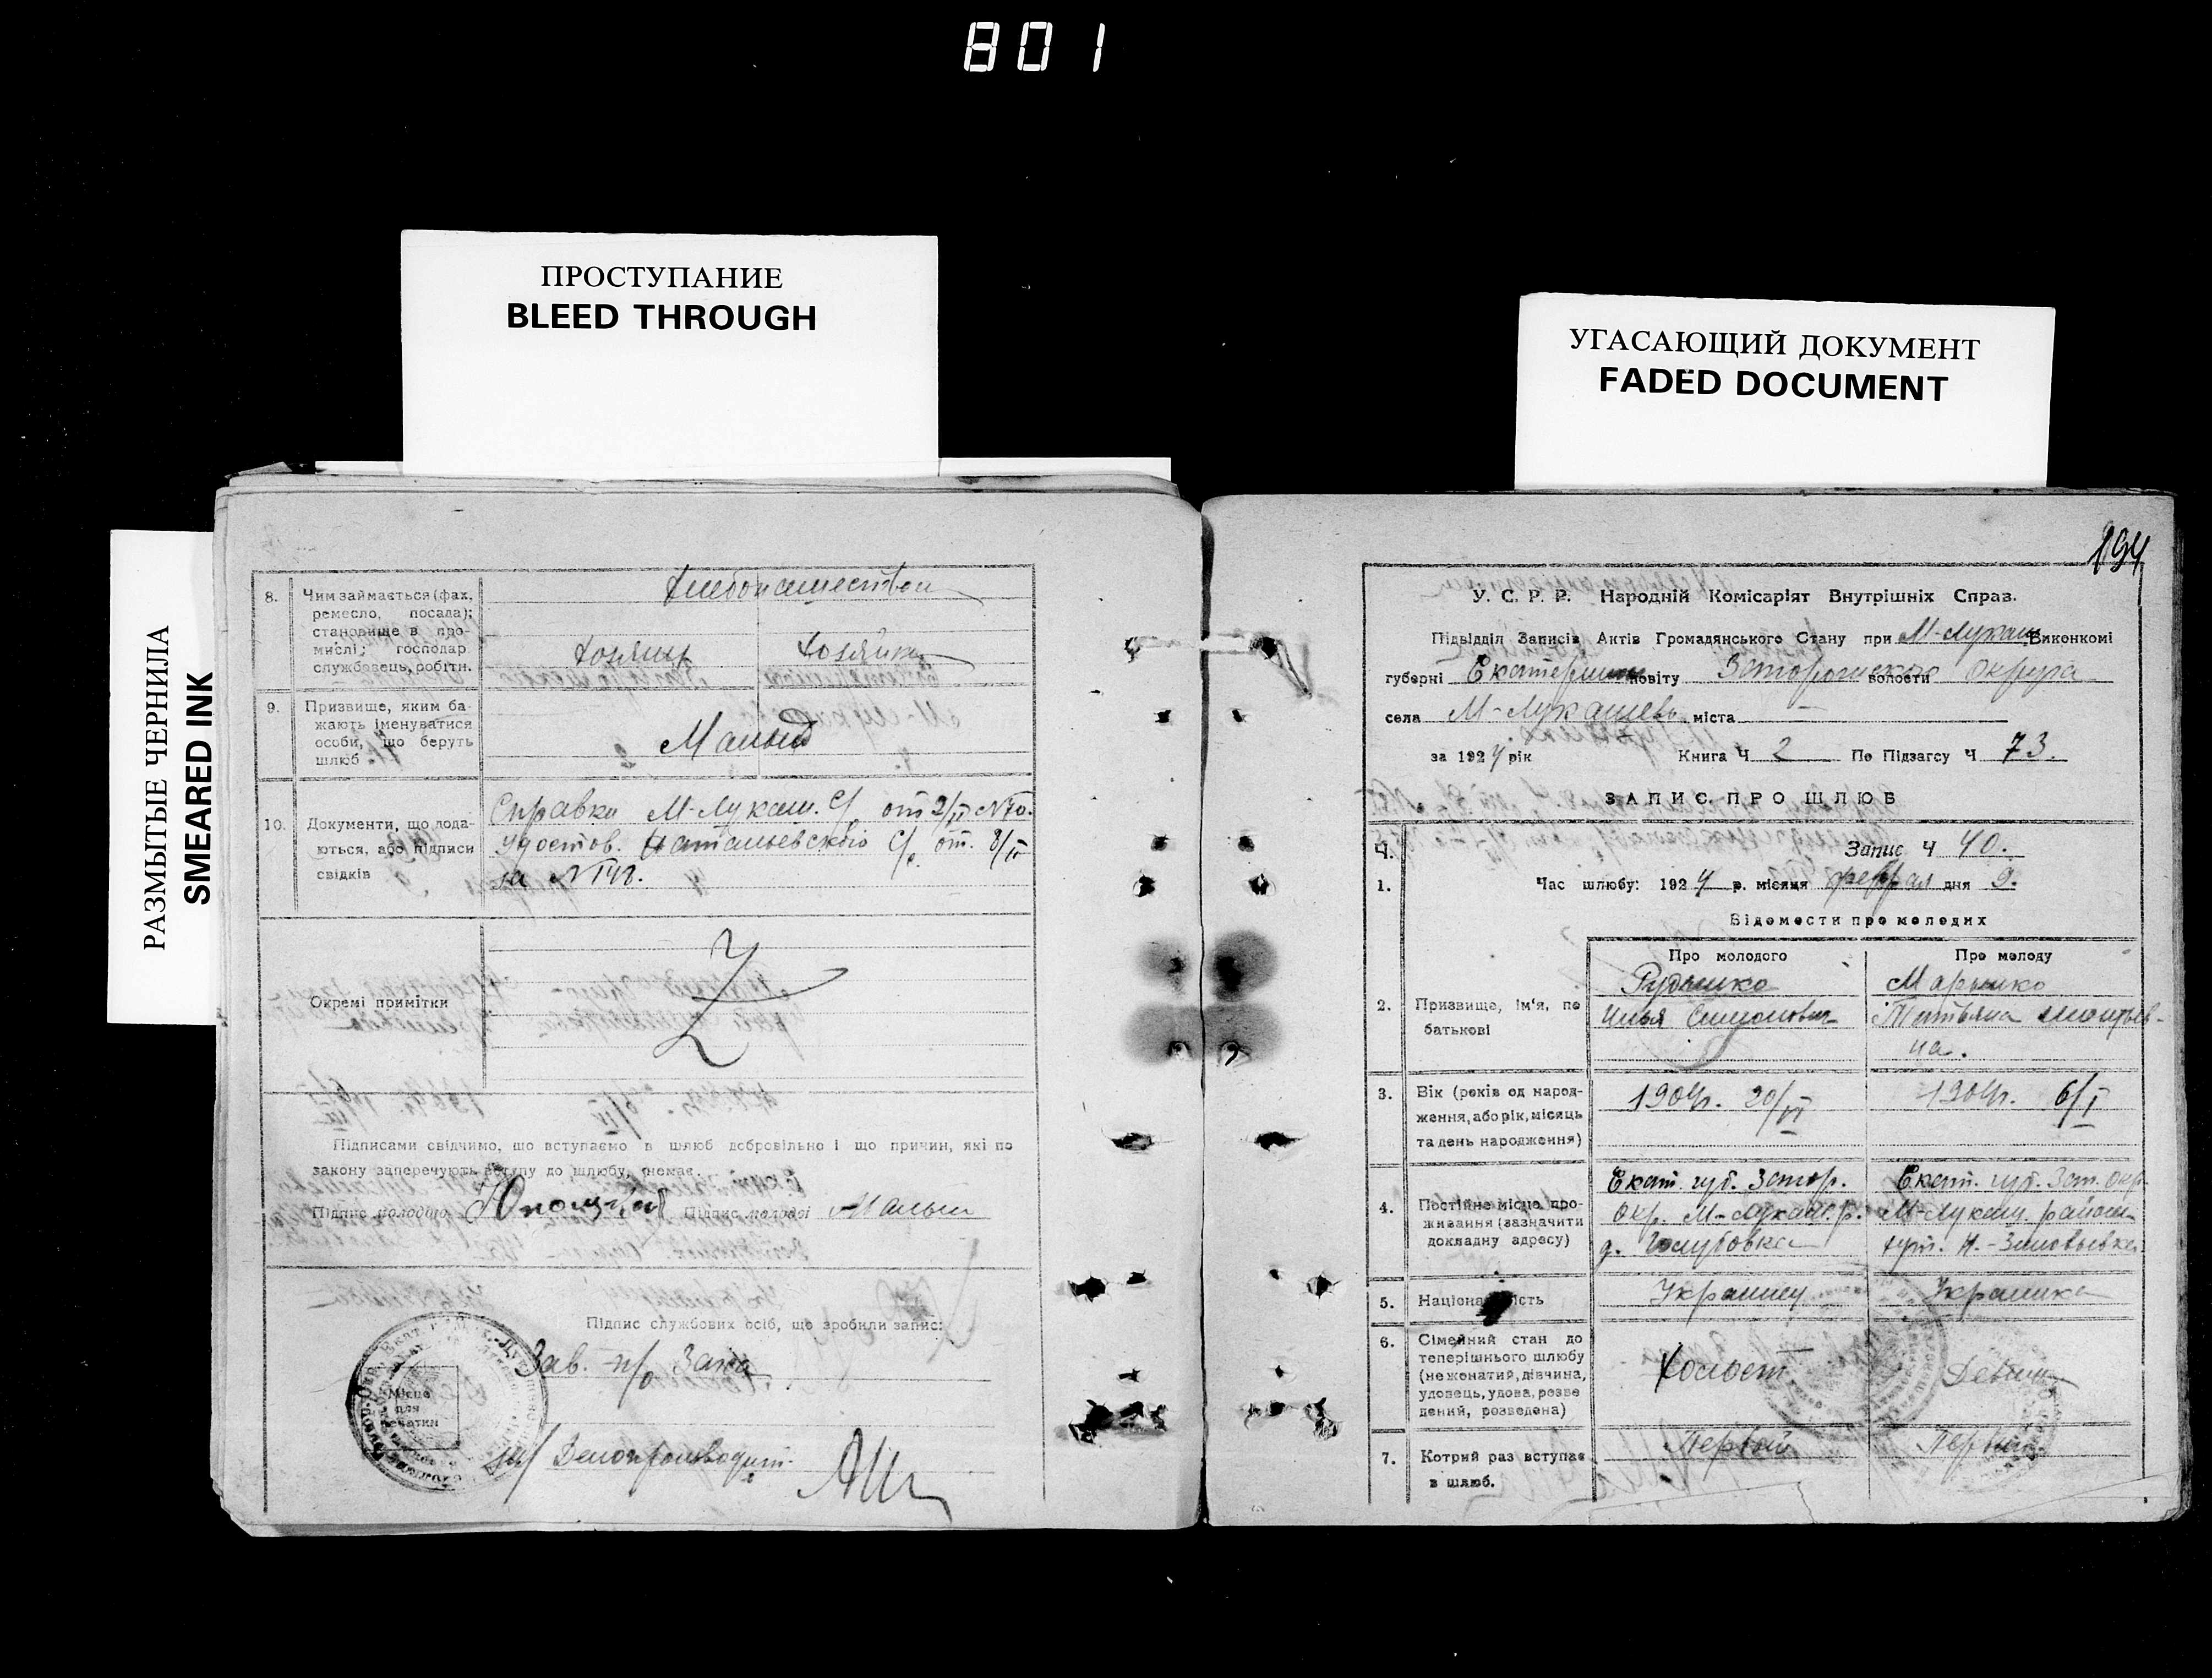 801
ПРОСТУПАНИЕ
BLEED THROUGH
УГАСАЮЩИЙ ДОКУМЕНТ
FADED DOCUMENT
РАЗМЫТЫЕ ЧЕРНИЛА
SMEARED INK
8. Чим займається (фах, ремесло, посада); становище в про-
мислі; господар, службовець, робітн.
Хлебопашеством
Хозяин Хозяйка
9. Призвище, яким ба-
жають іменуватися
особи, що беруть
шлюб
Малый
10. Документи, що пода-
ються, або підписи
свідків
Справка М-Лукаш. С/с от 2/II №70.
Удостов. Натальевского С/с от. 8/II
за №148.
Окремі примітки
Підписами свідчимо, що вступаємо в шлюб добровільно і що причин, які по
закону заперечують вступу до шлюбу, немає.
Підпис молодого Підпис молодої Малый
Підпис службових осіб, що зробили запис:
Зав. п/о Загса
Місце
для
печатки
Делопроизводит.
194
У. С. Р. Р. Народній Комісаріят Внутрішніх Справ.
Підвідділ Записів Актів Громадянського Стану при М-Лукаш Виконкомі
губерні Екатерин повіту Запорожского волости Округа
села М-Лукашев. міста —
за 1924 рік Книга Ч 2 По Підзагсу Ч 73.
ЗАПИС ПРО ШЛЮБ
Ч. Запис Ч 40.
1. Час шлюбу: 1924 р. місяця феврал дня 9.
Відомости про молодих
Про молодого Про молоду
2. Призвище, ім'я, по
батькові
Рудышко
Илья Симонович
Марынко
Татьяна
на.
3. Вік (років од народ-
ження, або рік, місяць
та день народження)
1904г. 20/VI
1904г. 6/I
4. Постійне місце про-
живання (зазначити
докладну адресу)
Екат. губ. Запор.
Окр. М-Лукаш. р.
д. Голубовка
Екат. губ. Зап. Окр.
М-Лукаш. район
хут. Н.-Зиновьевка
5. Національність
Украинец Украинка
6. Сімейний стан до
теперішнього шлюбу
(не жонатий, дівчина,
удовець, удова, розве
дений, розведена)
Холост Девица
7. Котрий раз вступає
в шлюб.
Первый Первый